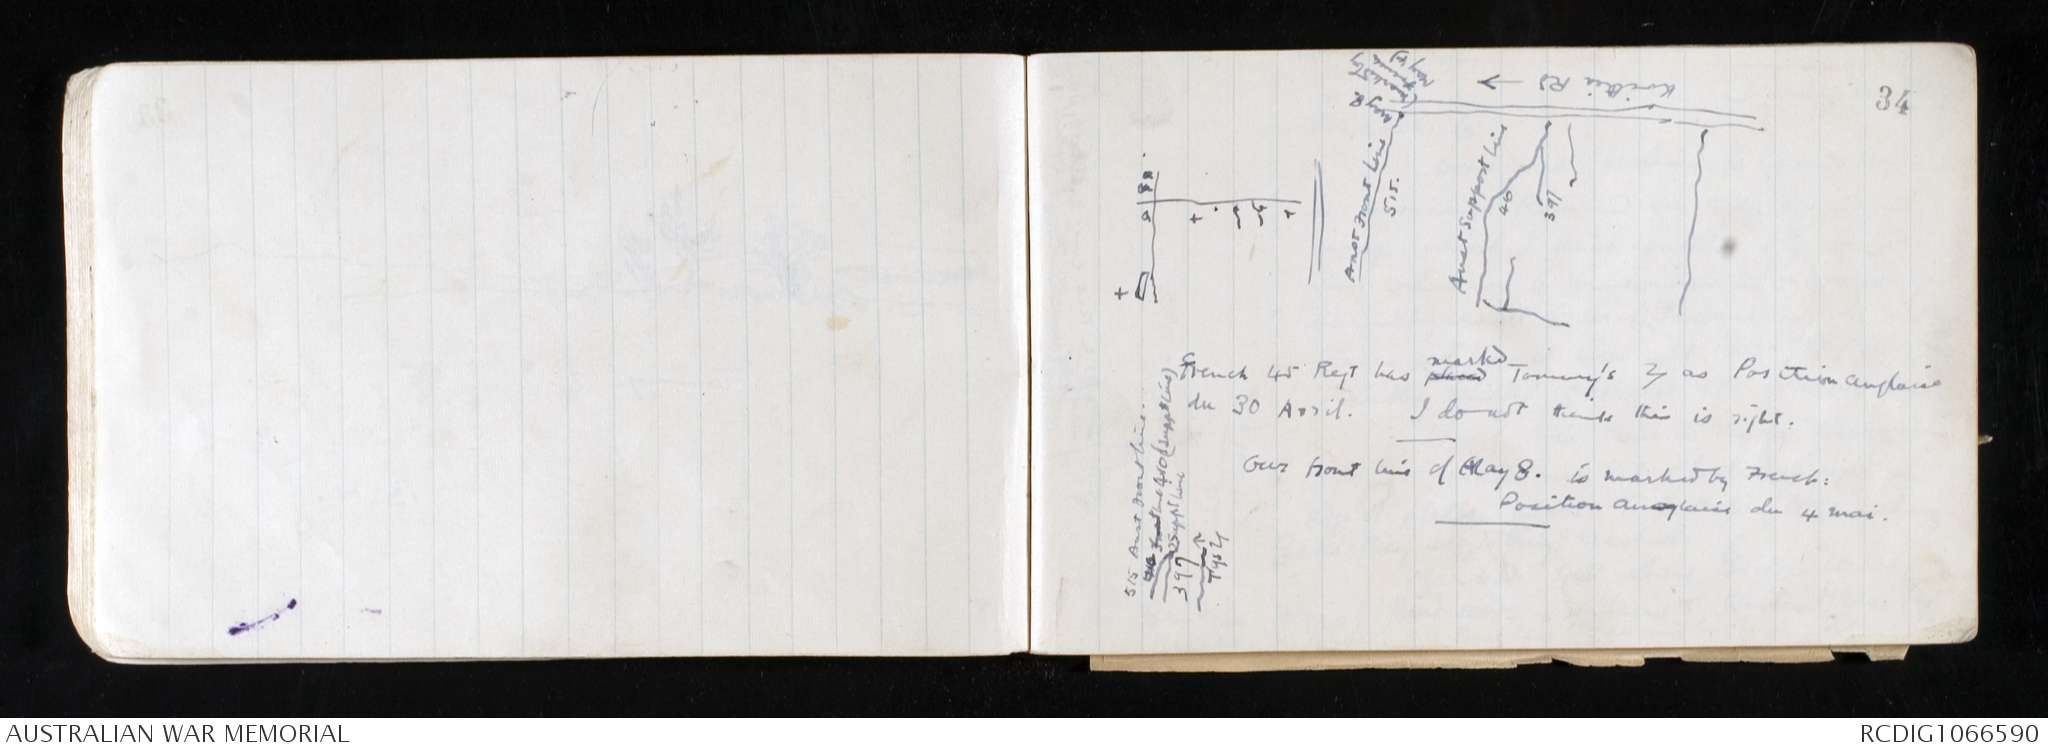 34
Krithia Rd →
Aust Front Line
515.
Aust Support Line
40
397
French 45 Regt has placed marked Tommy's Tr as Position anglaise
du 30 Avril. I do not think this is right.
Our front line of May 8. is marked by French:
Position anglaise du 4 mai.
515 Aust Front Line.
(Suppt Line)
Suppt Line
397
AUSTRALIAN WAR MEMORIAL
RCDIG1066590